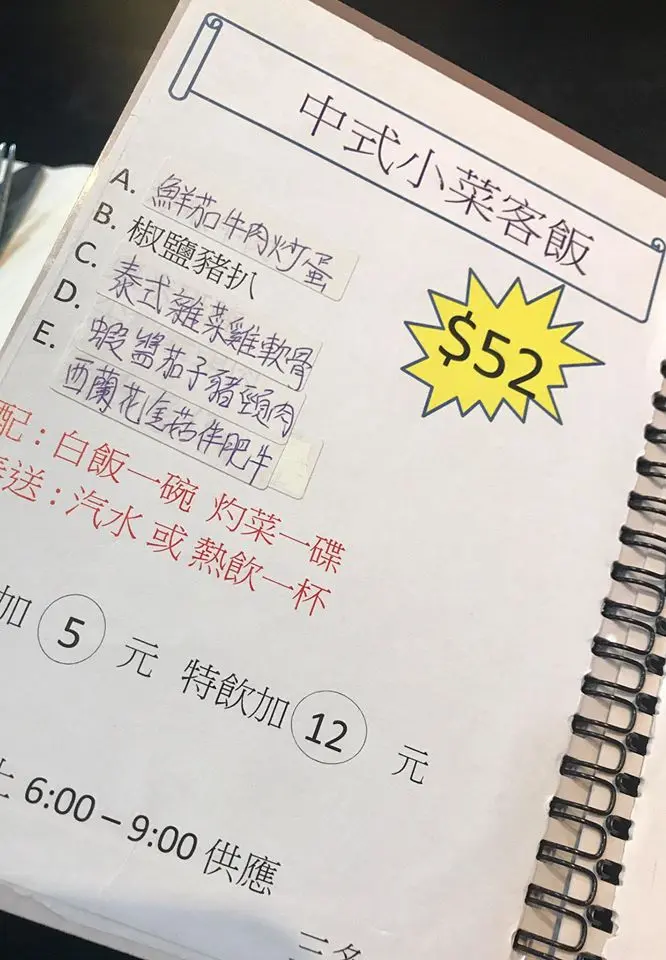 中式小菜客飯
$52
A. 鮮茄牛肉炒蛋
B. 椒鹽豬扒
C. 泰式雜菜雞軟骨
D. 蝦醬茄子豬頸肉
E. 西蘭花金菇伴肥牛
配：白飯一碗 灼菜一碟
送：汽水 或 熱飲一杯
加 5 元 特飲加 12 元
上 6:00 – 9:00 供應